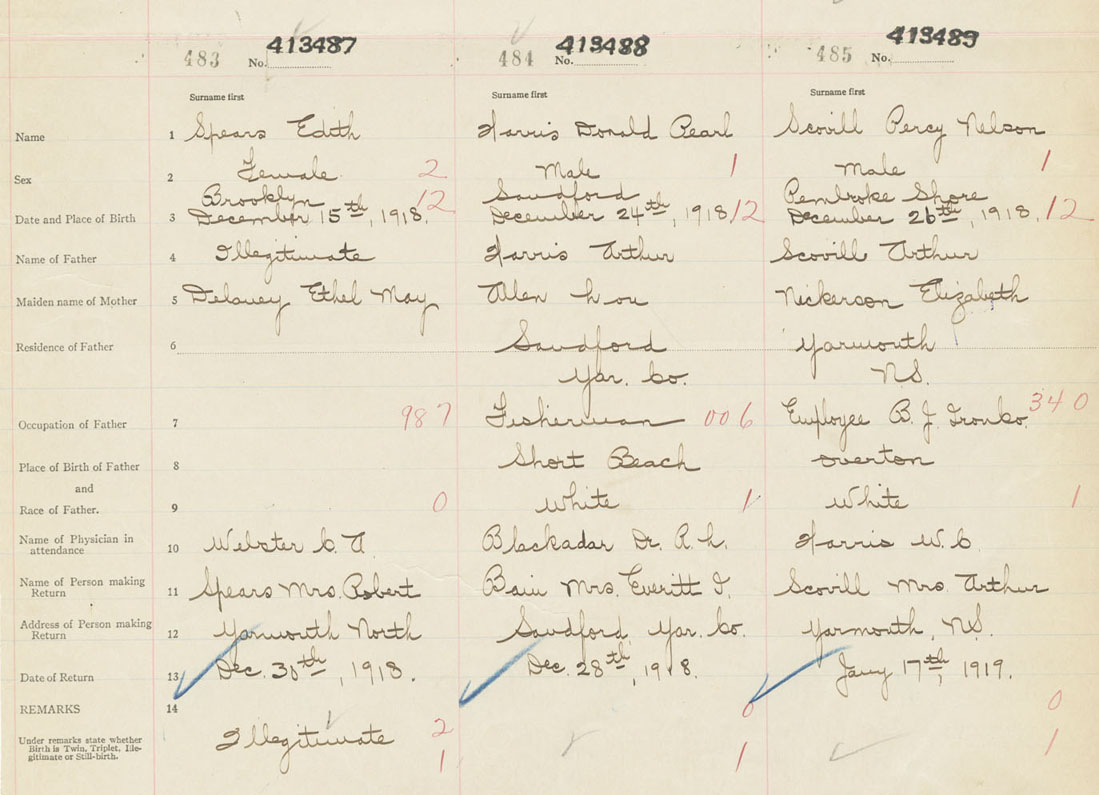 413487 413488 413489
483 No. 484 No. 485 No.
Surname first Surname first Surname first
Name 1 Spears Edith Harris Donald Pearl Scovill Percy Nelson
Sex 2 Female 2 Male 1 Male 1
Brooklyn 12 Sandford Pembroke Shore
Date and Place of Birth 3 December 15th, 1918. December 24th, 1918 12 December 26th, 1918. 12
Name of Father 4 Illegitimate Harris Arthur Scovill Arthur
Maiden name of Mother 5 Delaney Ethel May Allen Nickerson Elizabeth
Residence of Father 6 Sandford Yarmouth
Yar. Co. N.S.
Occupation of Father 7 987 Fisherman 006 Employee B. J. 340
Place of Birth of Father 8 Short Beach Overton
and
Race of Father. 9 0 White 1 White 1
Name of Physician in
attendance 10 Webster C. A. Blackadar Dr. A. L. Harris W. C.
Name of Person making
Return 11 Spears Mrs. Robert Bain Mrs. Everitt Scovill Mrs Arthur
Address of Person making
Return 12 Yarmouth North Sandford, Yar. Co. Yarmouth, N.S.
Date of Return 13 Dec. 30th, 1918. Dec. 28th, 1918. Jany 17th, 1919.
REMARKS 14 0 0
Under remarks state whether
Birth is Twin, Triplet, Ille-
gitimate or Still-birth. Illegitimate 2 1 1 1